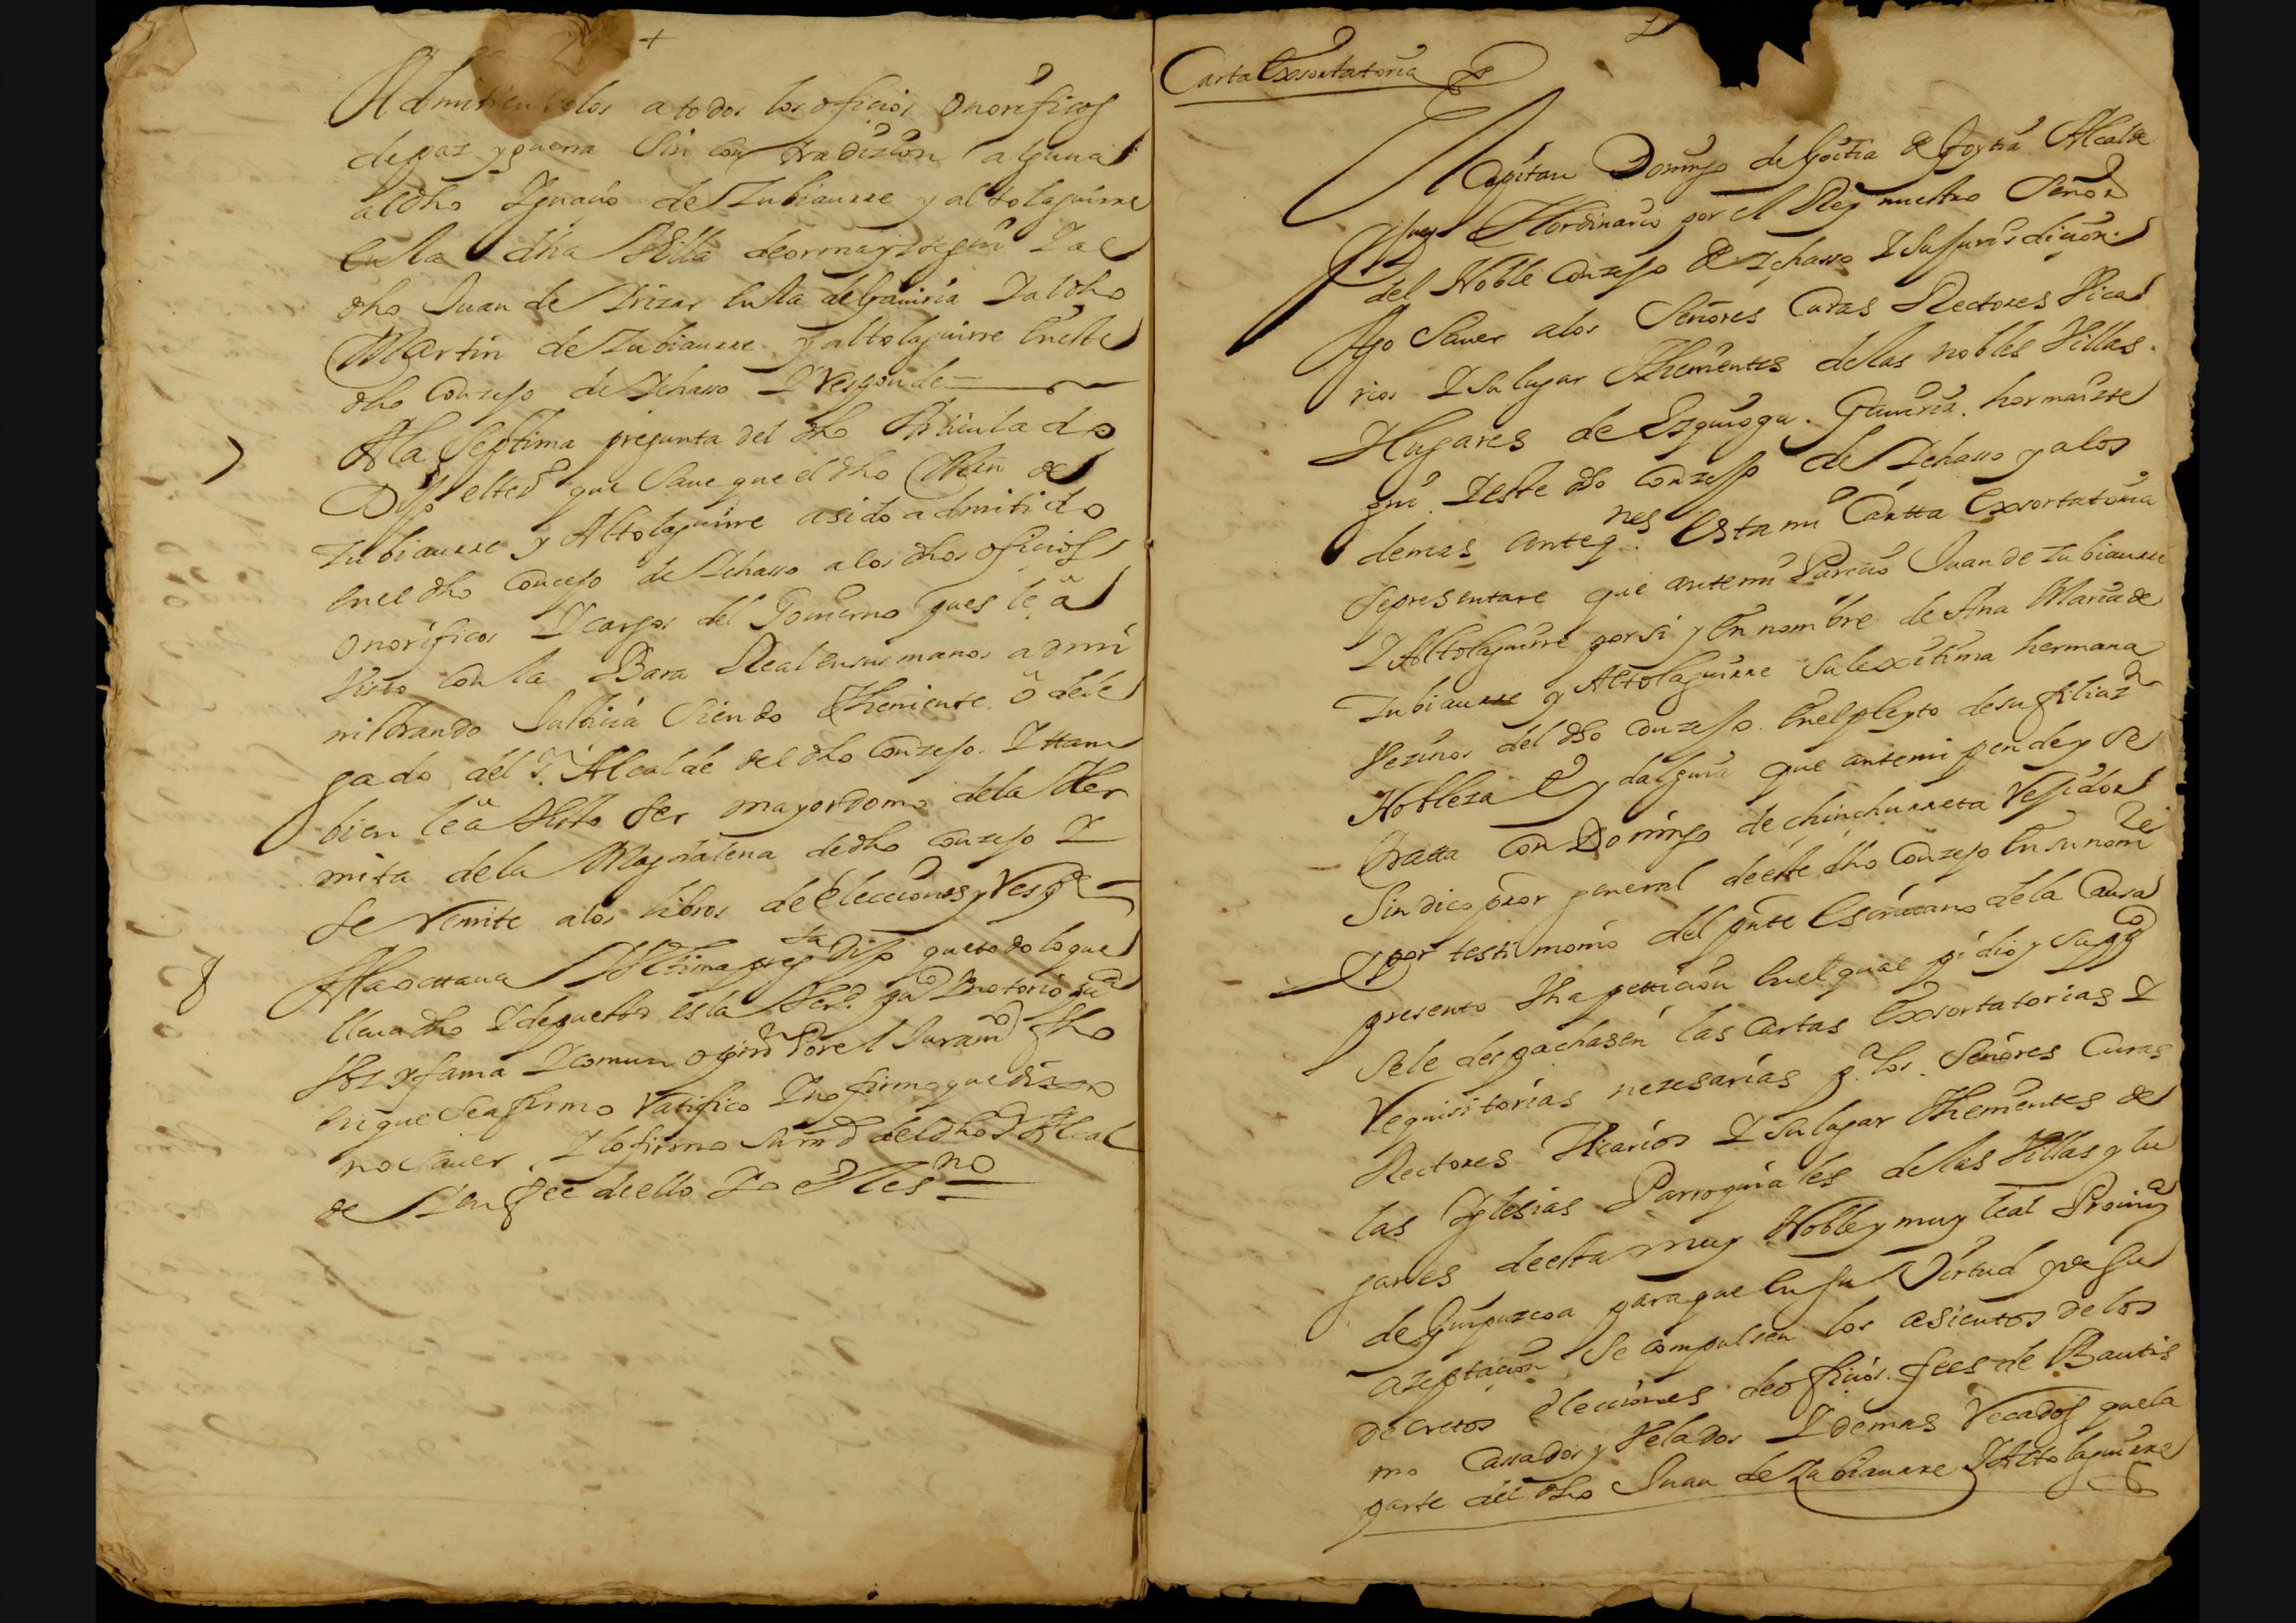 +
Admitiendolos a todos los ofiçios onorificos
de paz y guerra Sin contradizion alguna
al dho Ygnaçio de Zubiaurre y altolaguirre
en la dha Villa de ormayztegui Y al
dho Juan de Yrizar en la de Gaviria Y al dho
Martin de Zubiaurre y altolaguirre en este
dho Conzejo de Ychasso Y Responde
7 A la Septima pregunta del dho Articulado
Dijo el tesº que Save que el dho Min de
Zubiaurre y Altolaguirre a sido admitido
en el dho Concejo de Ychasso a los dhos ofiçios
onorificos Y cargos del Govierno pues le â
Visto con la Bara Real en sus manos admi
nistrando Justiçia Siendo Theniente ô dele
gado del Sr. Alcalde del dho Conzejo. Y ttam
bien le â Visto Ser mayordomo de la Her
mita de la Magdalena de dho Conzejo Y
Se Remite a los libros de elecciones y Respde
8 A la octtava Y Vltima pregta Dijo que todo lo que
lleva dho Y depuesto es la Verd. pco Y notorio pca
Voz y fama Y comun opinn Por el Juramto fho
en que Se afirmo Ratifico Y no firmo que dixo
no Saver, Y lo firmo Su md del dho Sr Alcal
de Y en fee de ello Yo el esno
Carta Exsortatoria
Capitan Domingo de Goitia Alcalde
Y Juez Hordinario por el Rey nuestro Señor
del Noble Conzejo de Ychasso Y Su Jurisdiçion.
Ago Saver a los Señores Curas Rectores Vica
rios Y Su lugar Thenientes de las nobles Villas.
Y lugares de Ezquioga. Gaviria. hormaizte
gui. Y este dho Conzejo de Ychasso y a los
demas anteq.nes Esta mi Cartta Exsortatoria
Sepresentare que ante mi Pareçio Juan de Zubiaurre
Y Altolaguirre por si y En nombre de Ana Maria de
Zubiaurre y Altolaguirre Su lexitima hermana
Vezinos del dho Conzejo. En el pleyto de su filiazn
Nobleza e ydalguia que ante mi pende y Se
tratta Con Domingo de chinchurreta Regidor
Sindico pror general de este dho Conzejo En su nomre
Y por testimonio del pnte Escrivano de la Causa
presento Vna pettiçion En el qual pidio y Suppco
Se le despachasen las Cartas Exsortatorias Y
Requisitorias nezesarias pa los Señores Curas
Rectores Vicarios Y Su lugar Thenientes de
las Yglesias Parroquiales de las Villas y lu
gares de esta muy Noble y muy leal Provinça
de Guipuzcoa para que En Su Virtud pr Su
azeptaçion Se compulsen los asientos de los
decretos elecciones de ofiçios. fees de Bautis
mo Cassados y Velados Y demas Recados que la
parte del dho Juan de Zubiaurre Y Altolaguirre